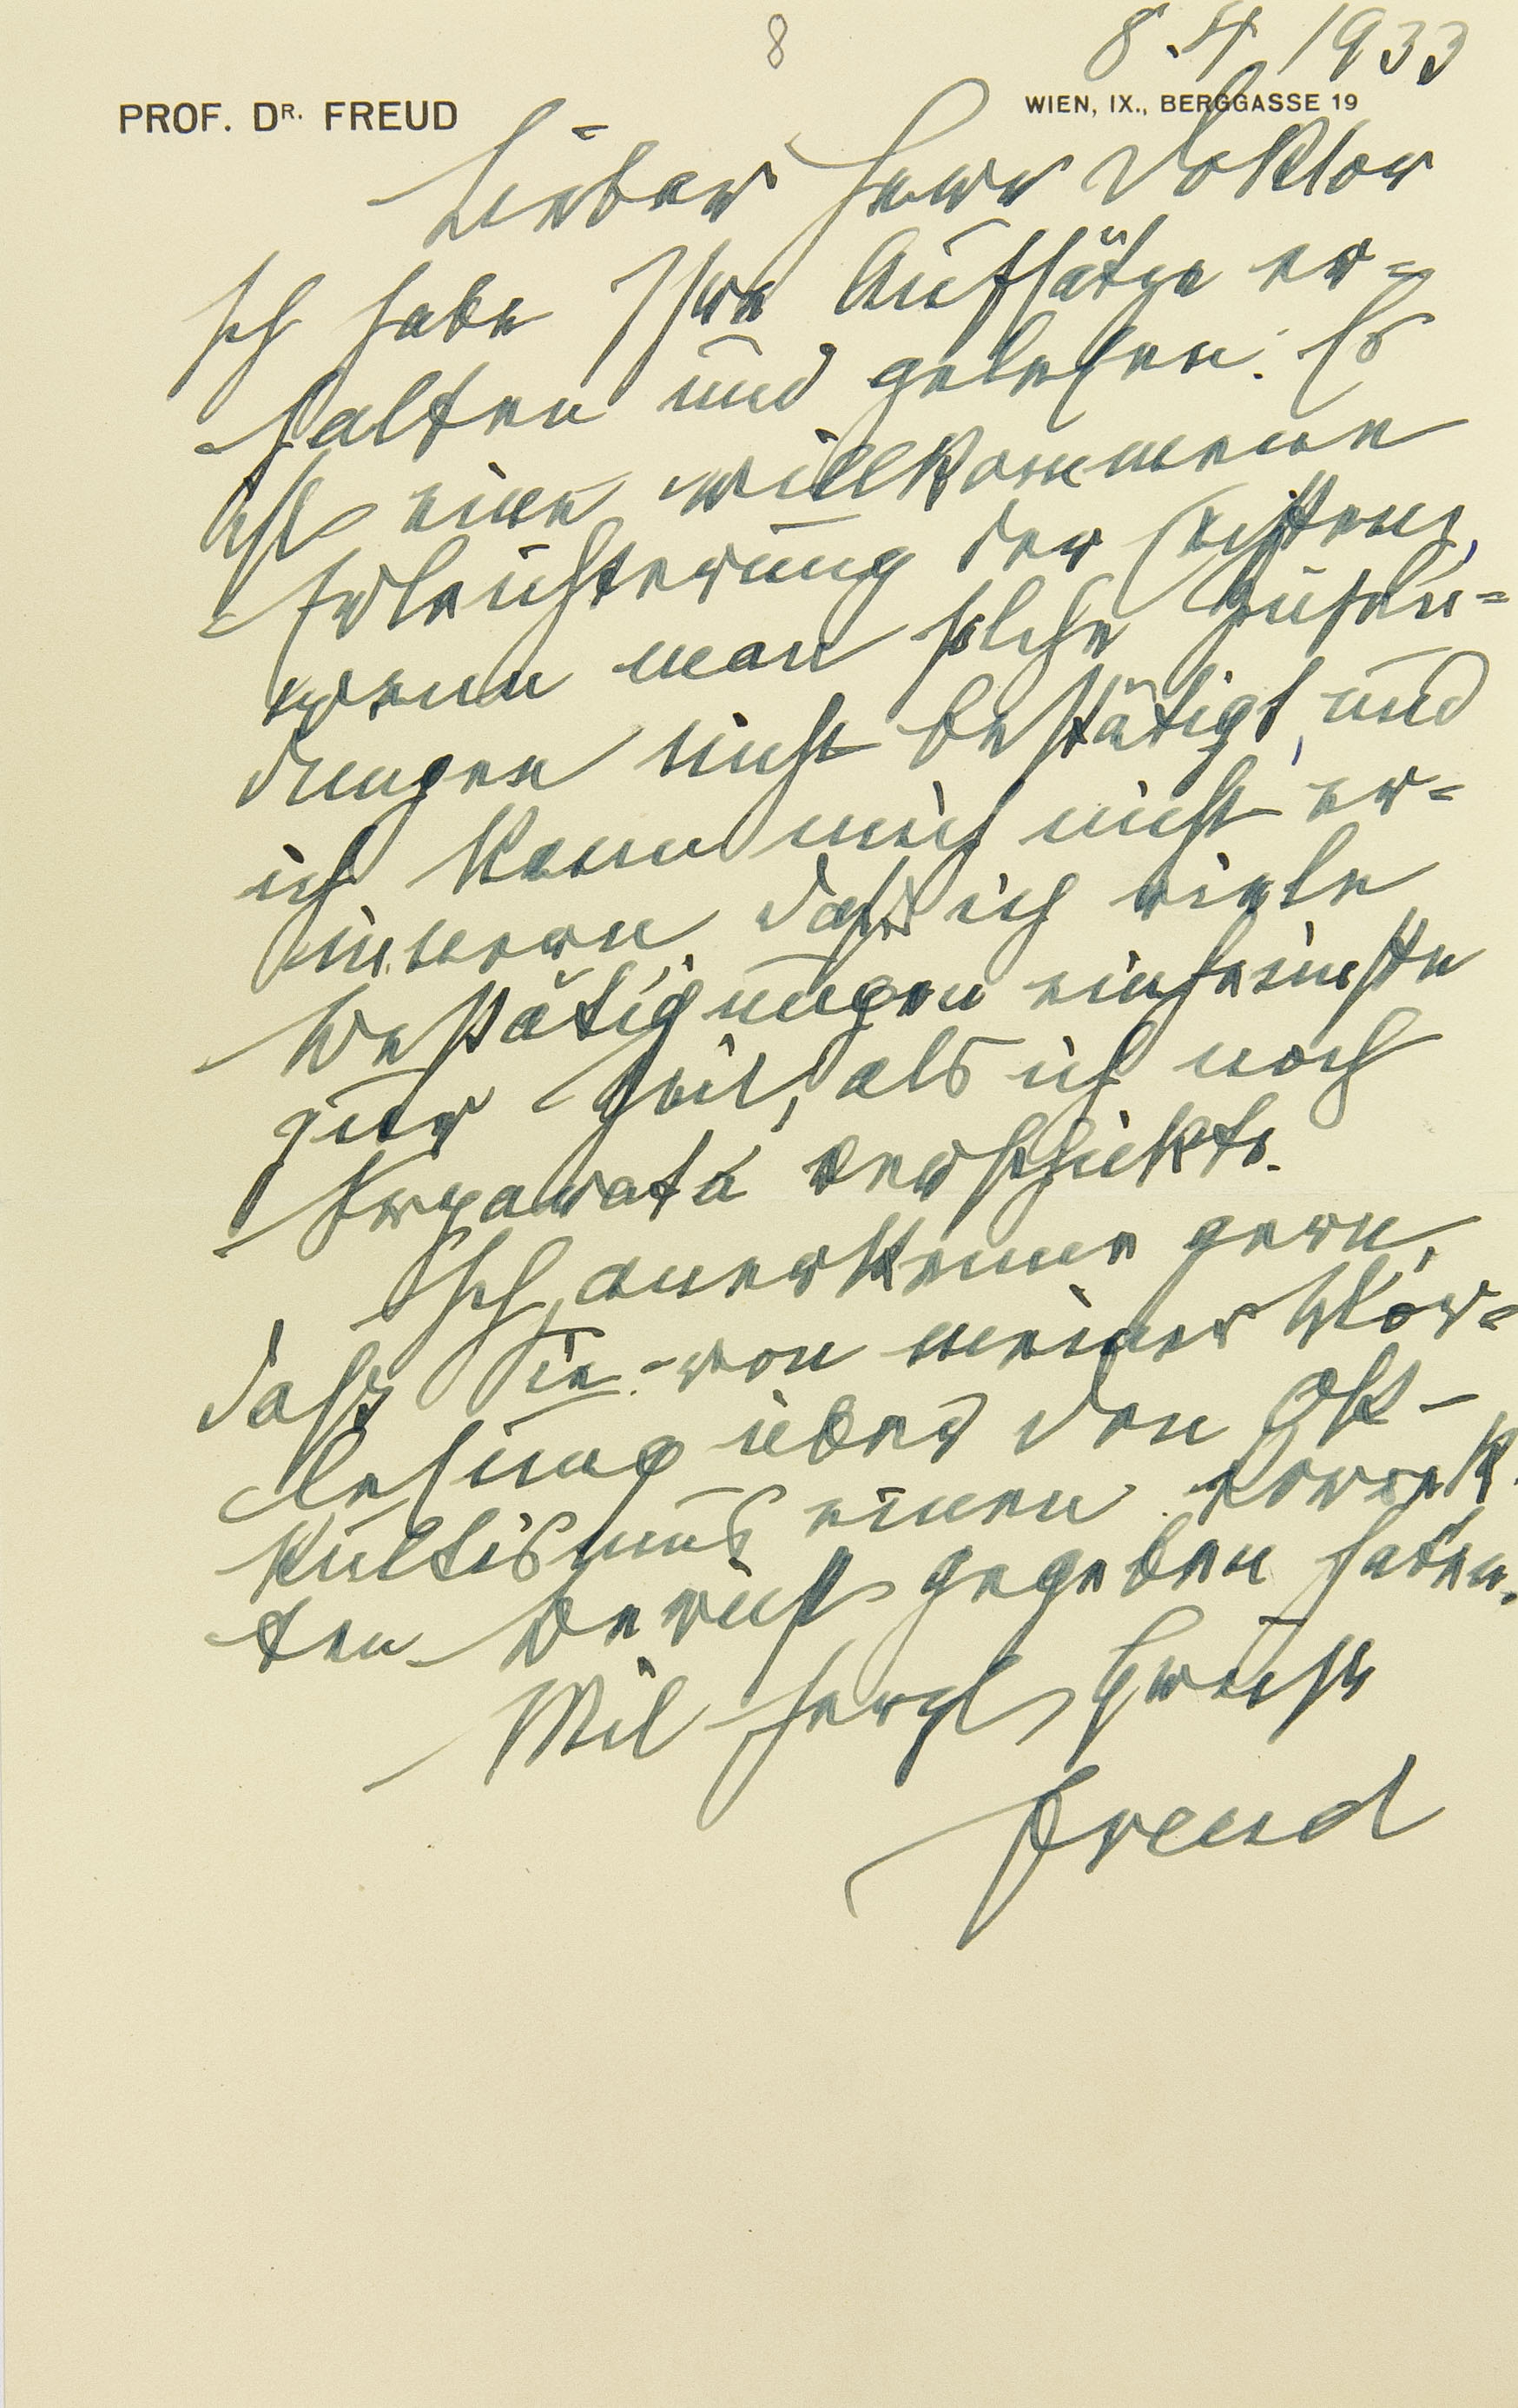 8
8.4 1933
PROF. DR. FREUD
WIEN, IX., BERGGASSE 19
Lieber Herr Doktor
Ich habe Ihre Aufsätze er=
halten und gelesen. Es
ist eine willkommene
Erleichterung der Existenz,
wenn man solche Zusen=
dungen nicht bestätigt, und
ich kann mich nicht er=
innern, daß ich viele
Bestätigungen einheimste
zur Zeit, als ich noch
Separata verschickte.
Ich anerkenne gern,
daß Sie von meiner Vor=
lesung über den Ok-
kultismus einen korrek-
ten Bericht gegeben haben.
Mit herzl Gruß
Freud